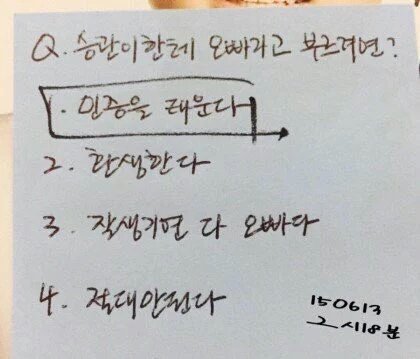 Q. 승관이한테 오빠라고 부르려면?
1. 민증을 태운다
2. 환생한다
3. 잘생기면 다 오빠다
4. 절대안된다
150613
그 시18분